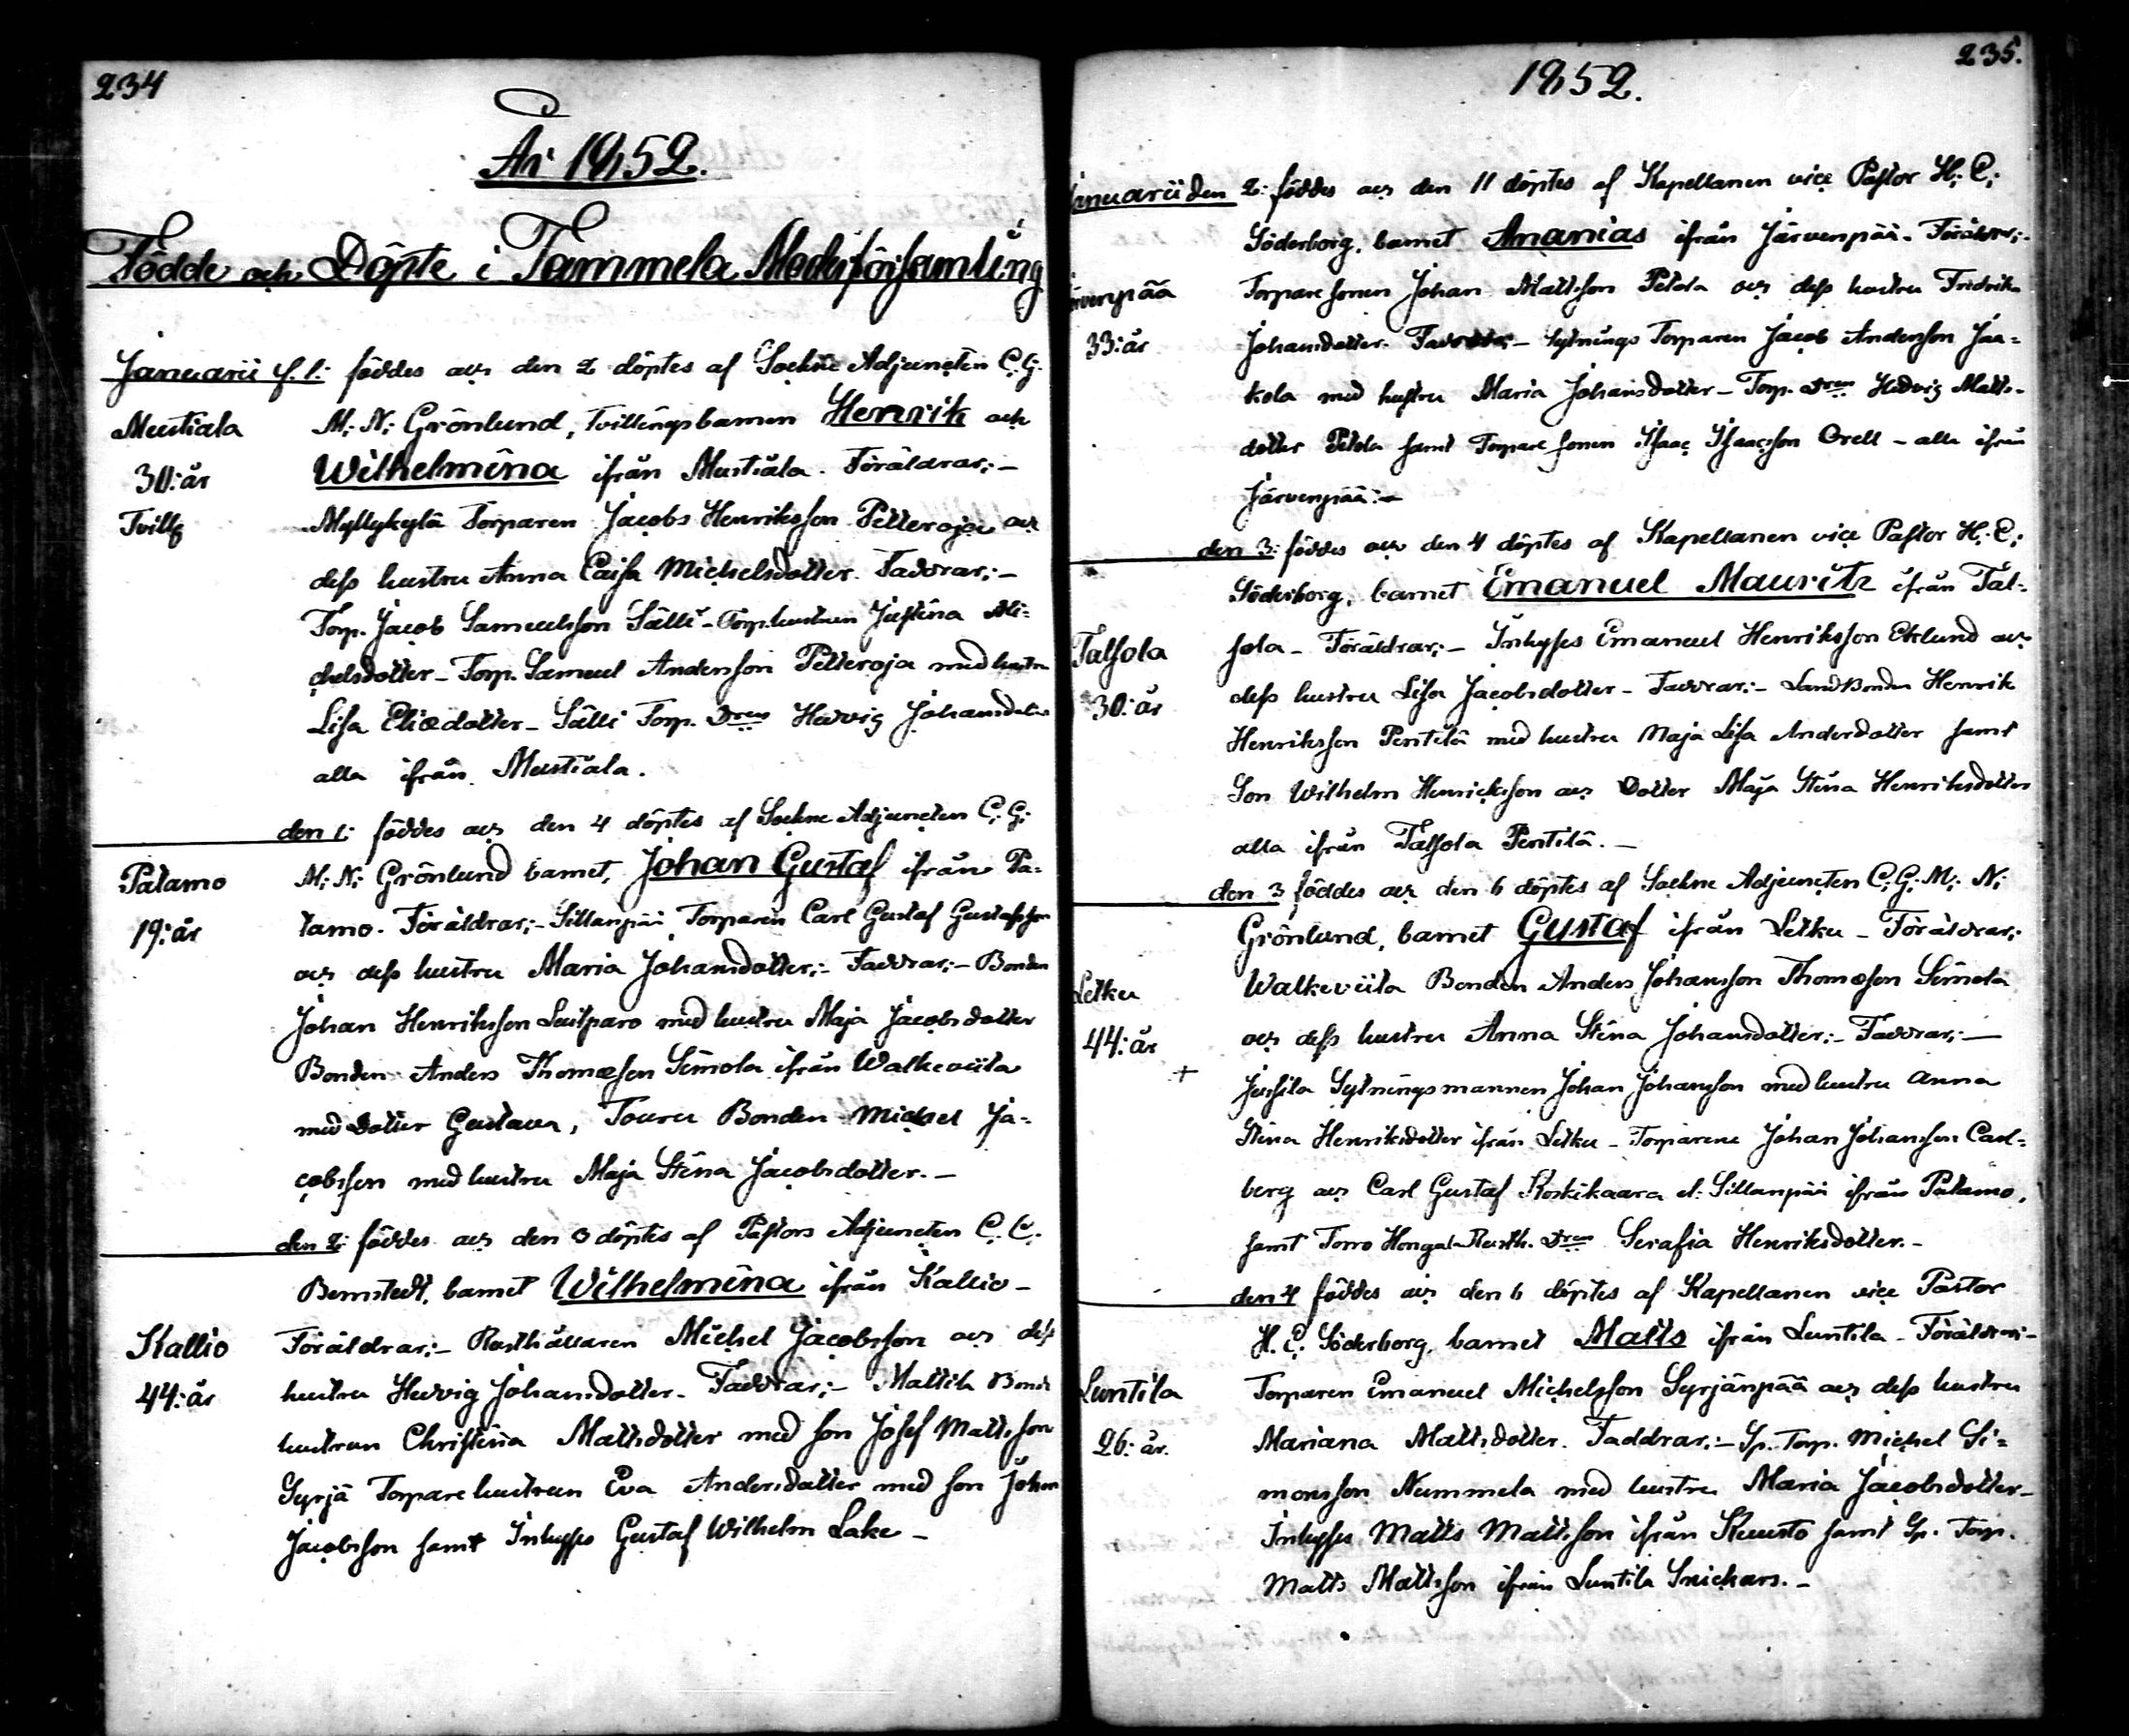 234
År 1852.
Födde och Döpte i Tammela Moderförsamling
Januarii d. 1: föddes och den 2 döptes af Sockne Adjuncten C. G.
Mustiala M. N. Grönlund, Tvillingsbarnen Henrik och
30: år Wilhelmina ifrån Mustiala. Föräldrar:-
Tvill Myllykylä Torparen Jacob Henriksson Petteroja och
dess hustru Anna Caisa Michelsdotter. Faddrar:-
Torp. Jacob Samuelsson Sälli - Torp.hustrun Justina Mi-
chelsdotter - Torp. Samuel Andersson Petteroja med hustru
Lisa Eliædotter - Sälli Torp. Dren Hedvig Johansdotter
alla ifrån Mustiala.
den 1: föddes och den 4 döptes af Sockne Adjuncten C. G.
Patamo M. N. Grönlund barnet, Johan Gustaf ifrån Pa-
19: år tamo. Föräldrar:- Sillanpää Torparen Carl Gustaf Gustafsson
och dess hustru Maria Johansdotter:- Faddrar:- Bonden
Johan Henriksson Lusparo med hustru Maja Jacobsdotter
Bonden Anders Thomæson Simola ifrån Walkeviita
med dotter Gustava, Touru Bonden Michel Ja-
cobsson med hustru Maja Stina Jacobsdotter.-
den 2: föddes och den 3 döptes af Pastors Adjuncten C. C.
Bernstedt, barnet Wilhelmina ifrån Kallio-
Kallio Föräldrar:- Rusthållaren Michel Jacobsson och dess
44: år hustru Hedvig Johansdotter. Faddrar:- Mattila Bond
hustrun Christina Mattsdotter med son Josef Mattsson
Syrjä Torpare hustrun Eva Andersdotter med son Johan
Jacobsson samt Inhyses Gustaf Wilhelm Lake-
235.
1852.
Januarii den 2: föddes och den 11 döptes af Kapellanen vice Pastor H. C.
Söderborg, barnet Ananias ifrån Järvenpää. Föräldrar:-
Järvenpää Torpare sonen Johan Mattsson Petola och dess hustru Fredrika
33: år Johansdotter. Faddrar:- Sytnings Torparen Jacob Andersson Jaa-
kola med hustru Maria Johansdotter - Torp. Dren Hedvig Matts-
dotter Petola samt Torpare sonen Isaac Isaacsson Orell - alla ifrån
Järvenpää:-
den 3: föddes och den 4 döptes af Kapellanen vice Pastor H. C.
Söderborg, barnet Emanuel Mauritz ifrån Tal-
Talsola sola - Föräldrar:- Inhyses Emanuel Henriksson Eklund och
30: år dess hustru Lisa Jacobsdotter - Faddrar:- Landbonden Henrik
Henriksson Pentilä med hustru Maja Lisa Andersdotter samt
Son Wilhelm Henricksson och Dotter Maja Stina Henriksdotter
alla ifrån Talsola Pentilä.-
den 3 föddes och den 6 döptes af Sockne Adjuncten C. G. M. N.
Grönlund, barnet Gustaf ifrån Letku - Föräldrar:
Letku Walkeviita Bonden Anders Johansson Thomæson Simola
44: år och dess hustru Anna Stina Johansdotter:- Faddrar:-
+ Jussila Sytningsmannen Johan Johansson med hustru Anna
Stina Henriksdotter ifrån Letku - Torparene Johan Johansson Carl-
berg och Carl Gustaf Koskikaara el. Sillanpää ifrån Patamo,
samt Torro Honga Rusth. Dren Serafia Henriksdotter.-
den 4 föddes och den 6 döptes af Kapellanen vice Pastor
H. C. Söderborg, barnet Matts ifrån Luntila - Föräldrar:-
Luntila Torparen Emanuel Michelsson Syrjänpää och dess hustru
26: år. Mariana Mattsdotter. Faddrar:- Sp. Torp. Michel Si-
monsson Nummela med hustru Maria Jacobsdotter-
Inhyses Matts Mattsson ifrån Kuusto samt Sp. Torp.
Matts Mattsson ifrån Luntila Snickars.-